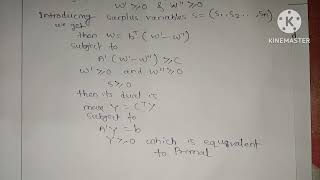 W' ≥ 0 & W'' ≥ 0
Introducing surplus variables S = (S1, S2 ...., Sn)
we get
then W = bᵀ (W' - W'')
subject to
A' (W' - W'') ≥ C
W' ≥ 0 and W'' ≥ 0
S ≥ 0
then its dual is
Y = CᵀY
subject to
A'Y = b
Y ≥ 0 which is equivalent
to Primal
MADE WITH
KINEMASTER